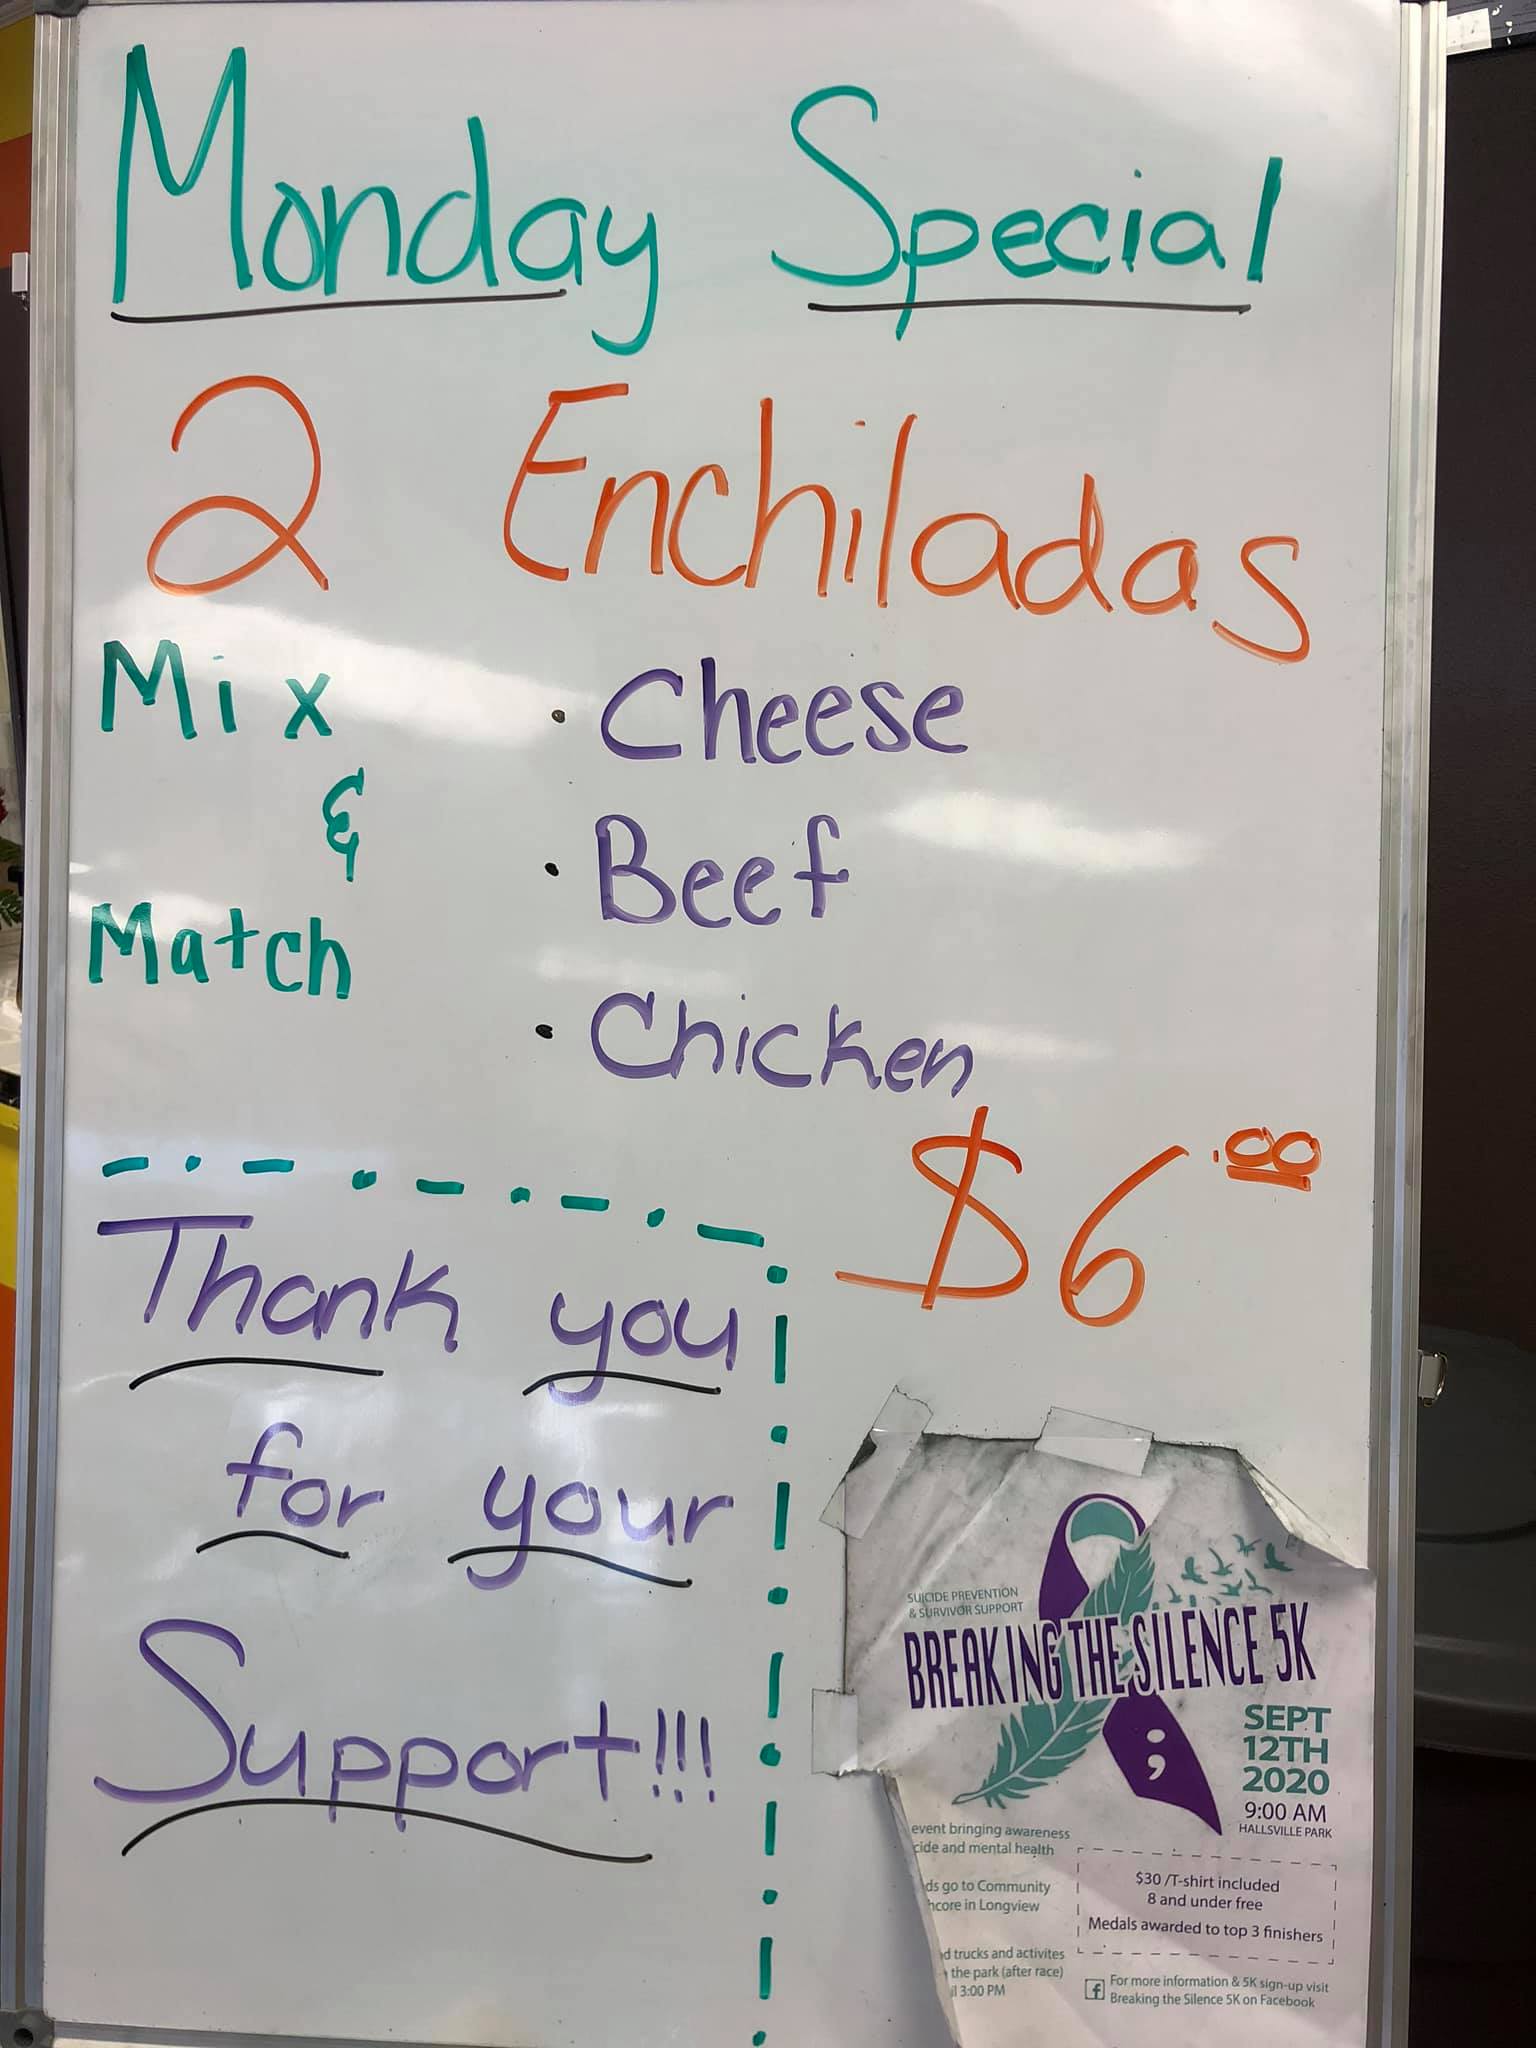 Monday Special
2 Enchiladas
Mix
&
Match
· Cheese
· Beef
· Chicken
$6.00
Thank you
for your
Support!!!
SUICIDE PREVENTION
& SURVIVOR SUPPORT
BREAKING THE SILENCE 5K
SEPT
12TH
2020
9:00 AM
HALLSVILLE PARK
event bringing awareness
cide and mental health
ds go to Community
hcore in Longview
d trucks and activites
the park (after race)
il 3:00 PM
$30 /T-shirt included
8 and under free
Medals awarded to top 3 finishers
f For more information & 5K sign-up visit
Breaking the Silence 5K on Facebook